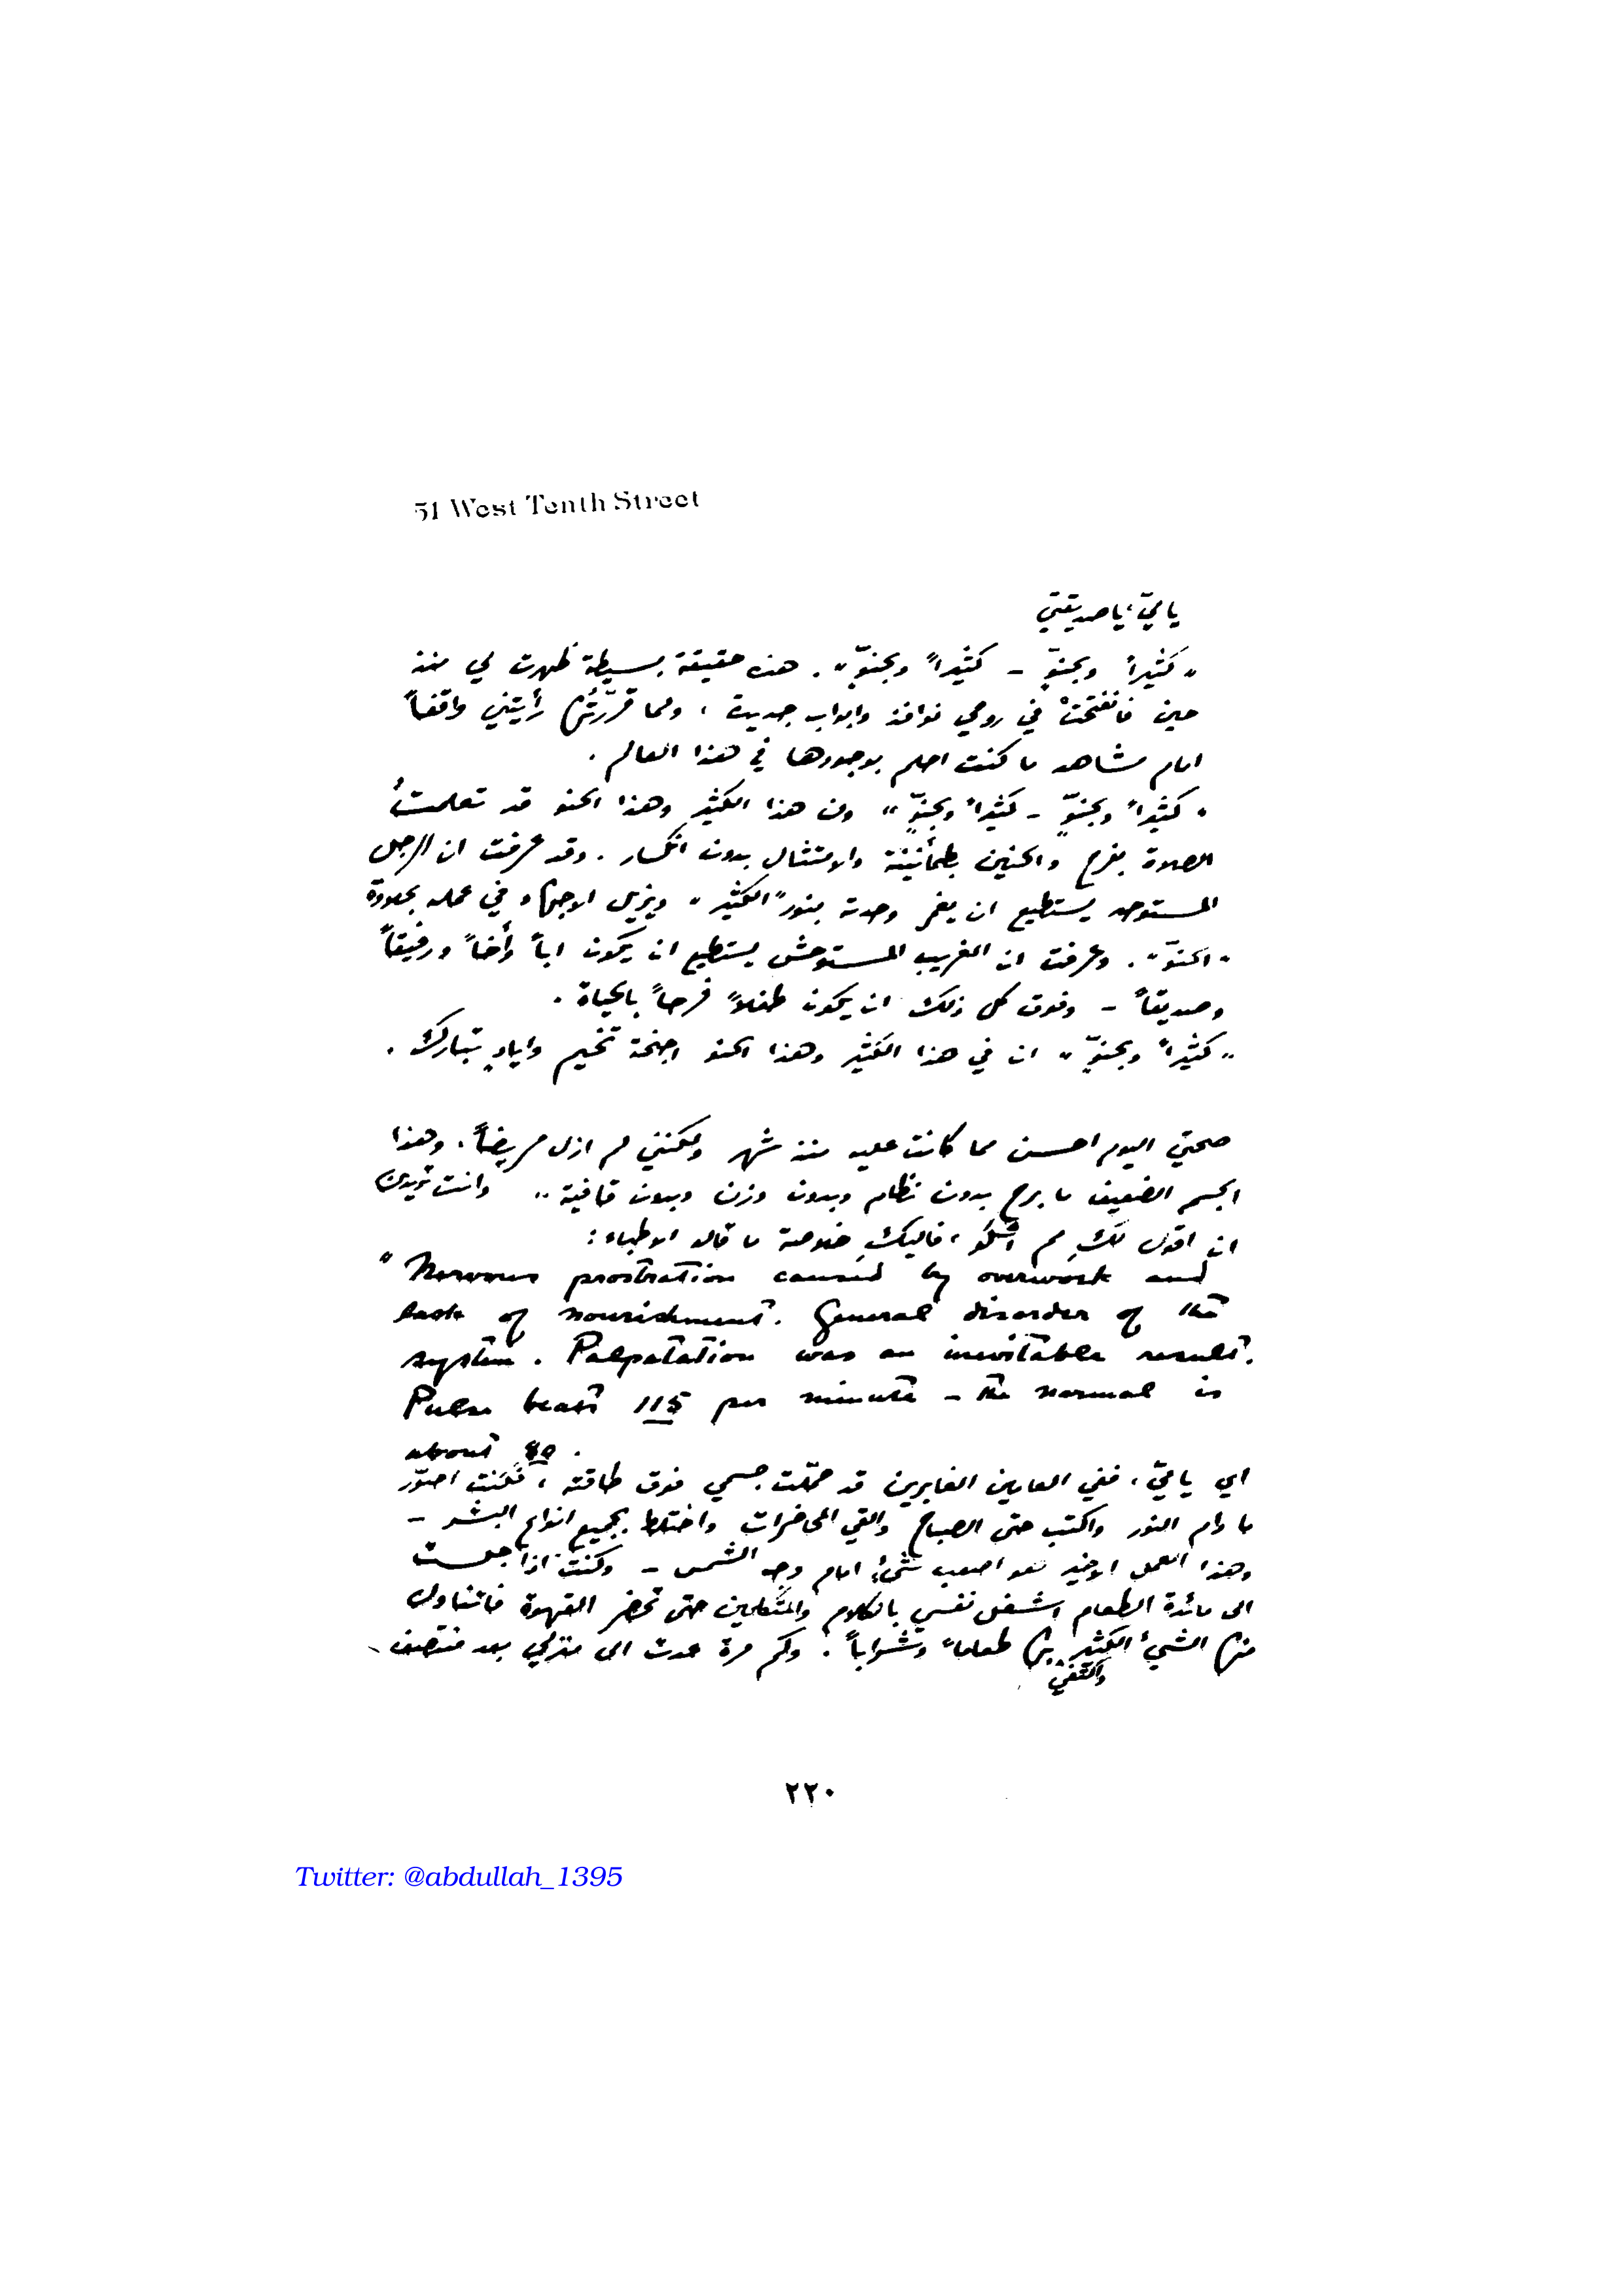 51 West Tenth Street
يا ميّ، يا صديقتي
"كثيراً وبحنوّ - كثيراً وبحنوّ". هذه حقيقة بسيطة ظهرت لي منذ
حين فانفتحت في روحي نوافذ وابواب جديدة، ولما قررتها رأيتني واقفاً
امام مشاهد ما كنت احلم بوجودها في هذا العالم.
"كثيراً وبحنوٍّ - كثيراً وبحنوٍّ" ومن هذا الكثير وهذا الحنو قد تعلمتُ
الصلاة بفرح والحنين بطمأنينة والامتثال بدون انكسار. وقد عرفت ان الرجل
المستوحد يستطيع ان يغمر وحدته بنور "الكثير" ويزيل الاجهاد في عمله بحلاوة
"الحنوّ". وعرفت ان الغريب المستوحش يستطيع ان يكون اباً وأخاً ورفيقاً
وصديقاً - وفوق كل ذلك ان يكون طفلاً فرحاً بالحياة.
"كثيراً وبحنوٍّ" ان في هذا الكثير وهذا الحنو اجنحة تخيم وايادٍ تبارك.
صحتي اليوم احسن مما كانت عليه منذ شهر ولكنني لم ازل مريضاً، وهذا
الجسم الضعيف ما برح بدون نظام وبدون وزن وبدون قافية.. وانت تريدين
ان اقول لكِ مم اشكو، فاليكِ خلاصة ما قاله الاطباء:
"Nervous prostration caused by overwork and
lack of nourishment. General disorder of the
system. Palpatation was an inevitable result.
Pulse beats 115 per minute - the normal is
about 80.
اي يا ميّ، ففي العامين الغابرين قد حمّلت جسمي فوق طاقته، فكنت اصوّر
ما دام النور واكتب حتى الصباح والقي المحاضرات واختلط بجميع انواع البشر -
وهذا العمل الاخير هو اصعب شيءٍ امام وجه الشمس - وكنت اذا جلست
الى مائدة الطعام اشغل نفسي بالكلام والمتكلمين حتى تحضر القهوة فاتناول
منها الشيءَ الكثير واكتفي بها طعاماً وشراباً. وكم مرة عدت الى منزلي بعد منتصف
٢٢٠
Twitter: @abdullah_1395